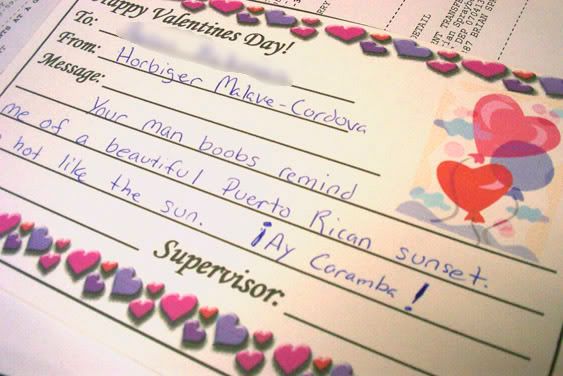 Happy Valentines Day!
To:
From: Horbiger Malave-Cordova
Message:
Your man boobs remind
me of a beautiful Puerto Rican sunset.
hot like the sun. ¡Ay Caramba!
Supervisor:
DETAIL
INT TRANSF
DEP 070413